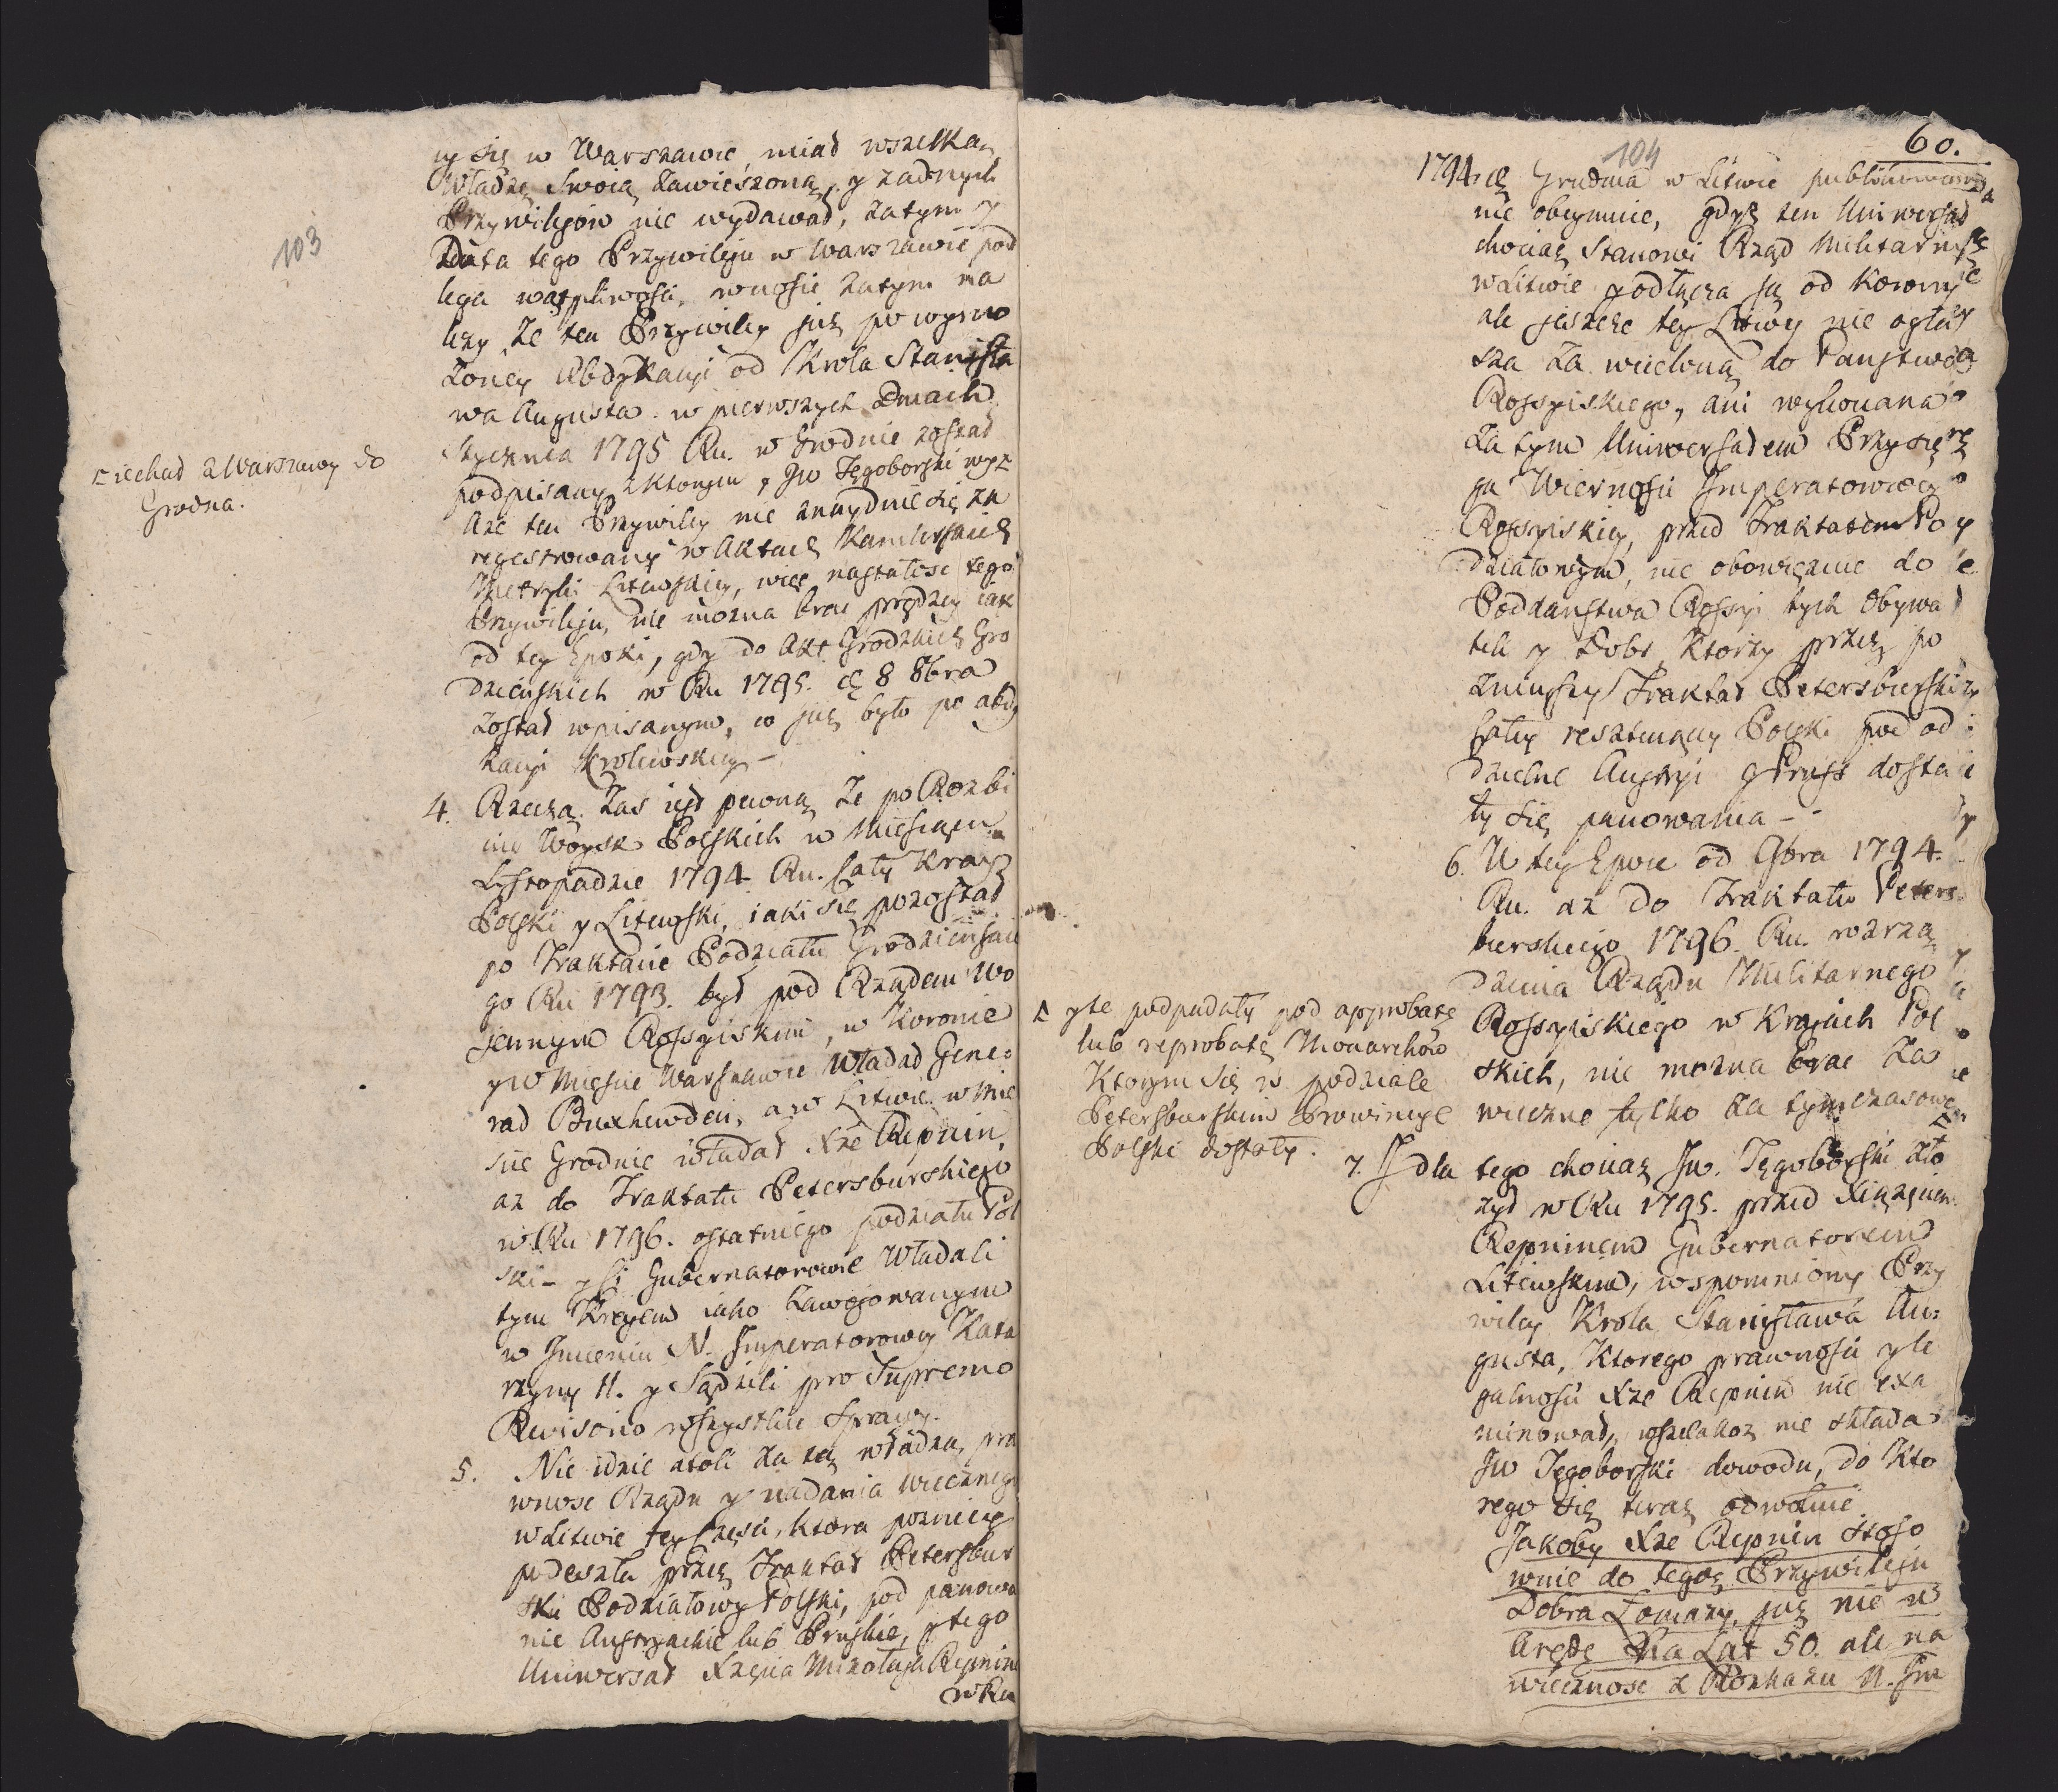 103
y się w Warszawie, miał wszelką
Władzę Swoią zawieszoną, y żadnych
Przywilejów nie wydawał, zatym y
Data tego Przywileju w Warszawie pod
lega wątpliwości, wnosić zatym na
leży, że ten Przywiley już po wymu
szoney Abdykacyi od Krola Stanisła
wa Augusta w pierwszych Dniach
Stycznia 1795 Ru. w Grodnie został
podpisany, z ktorym, JW Tęgoborski wyz
iechał z Warszawy do
Grodna.
Aże ten Przywiley nie znayduie się za
regestrowany w Aktach Kancellaryi
Metryki Litewskiey, więc nastałość tego
Przywileju, nie można brać prędzey iak
od tey Epoki, gdy do Akt Grodzkich Gro
dzieńskich w Ru 1795. d. 8 8bra
został wpisanym, co już było po abdy
kacyi Krolewskiey –
4. Rzeczą zas iest pewną że po Rozbi
ciu Woysk Polskich w Miesiącu
Lystopadzie 1794 Ru. Cały Kray
Polski y Litewski, iaki się pozostał
po Traktacie Podziału Grodzieńskie
go Ru 1793. był pod Rządem Wo
jennym Rossyiskim, w Koronie
y w Mieście Warszawie Władał Gene:
rał Buxhewden, a w Litwie w Mie
ście Grodnie władał Xże Repnin,
aż do Traktatu Petersburskiego
w Ru 1796. ostatniego podziału Pol
ski – y Ci Gubernatorowie Władali
tym Krajem iako zawojowanym
w Imieniu N. Imperatorowy Kata
rzyny II. y Sądzili pro Supremo
Revisorio wszystkie Sprawy.
5. Nie idzie atoli za tą władzą pra
wność Rządu y nadania wiecznego
w Litwie tey Części, ktora pozniey
podeszła przez Traktat Petersbur
ski Podziałowy Polski, pod panowa
nie Austryackie lub Pruskie, y tego
Uniwersał Xżęcia Mikołaja Repnina
w Ru
104
60.
1794. d. Grudnia w Litwie publikowany
nie obeymuie, gdyż ten Uniwersał
chociaż Stanowi Rząd Militarny
w Litwie y odłącza ją od Korony
ale jeszcze tey Litwy nie ogła
sza za wcieloną do Panstwa
Rossyiskiego, ani wykonana
za tym Uniwersałem Przysię
ga Wierności Imperatorowey
Rossyiskiey, przed Traktatem Po
działowym, nie obowięzuie do
Poddaństwa Rossyi tych Obywa
teli y Dobr, Ktorzy przez po
zniejszy Traktat Petersburski
całey resztuiący Polski pod od
dzielne Austryi y Pruss dosta
ły się panowania –
6. W tey Epoce od 9bra 1794.
Ru. aż do Traktatu Peters
burskiego 1796. Ru. rozrzą
dzenia Rządu Militarnego
Rossyiskiego w Krajach Pol
skich, nie można brać za
wieczne tylko za tymczasowe
y te podpadały pod approbatę
lub reprobatę Monarchów
Ktorym się w podziale
Petersburskim Prowincye
Polski dostały.
7. I dla tego chociaż JW. Tęgoborski zło
żył w Ru 1795. przed Xiążęciem
Repninem Gubernatorem
Litewskim, wspomniony Przy
wiley Krola Stanisława Au:
gusta, Ktorego prawności y le
galności Xże Repnin nie exa
minował, wszelakoż nie składa
JW Tęgoborski dowodu, do Kto
rego się teraz odwołuie
Jakoby Xże Repnin stoso
wnie do tegoż Przywileju
Dobra Łomazy, już nie w
Arędę Na Lat 50. ale na
wieczność z Rozkazu N. Im